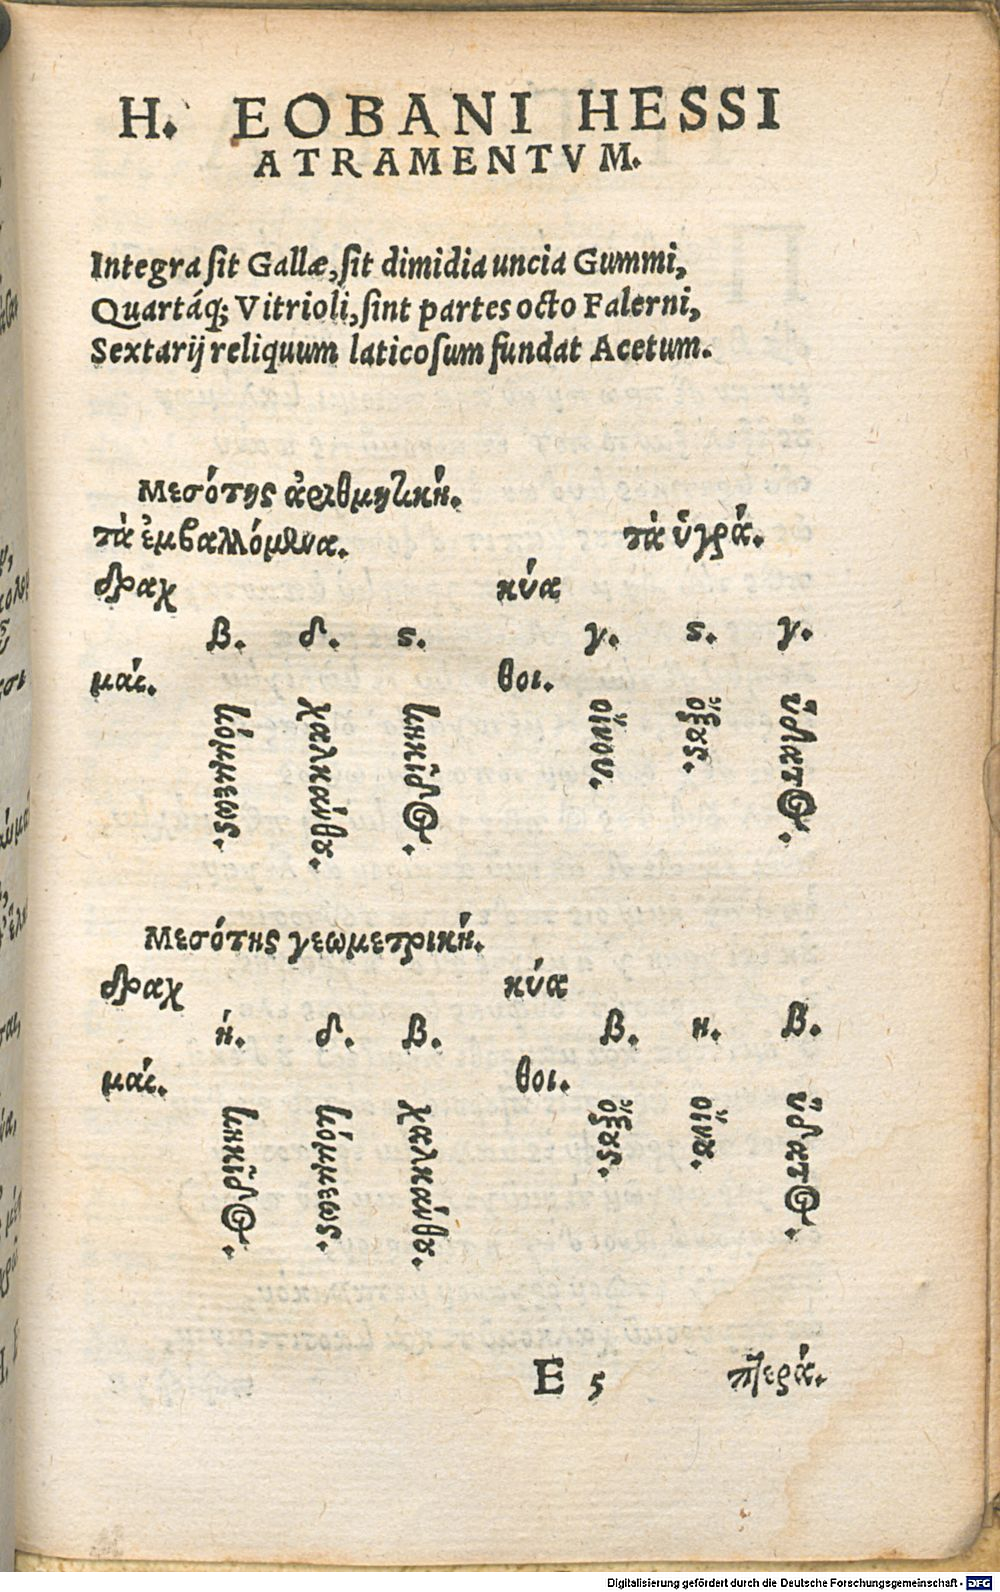 H. EOBANI HESSI
ATRAMENTVM.
Integra sit Gallæ, sit dimidia uncia Gummi,
Quartáq; Vitrioli, sint partes octo Falerni,
Sextarij reliquum laticosum fundat Acetum.
Μεσότης ἀριθμητικὴ.
τὰ ἐμβαλλόμενα. τὰ ὑγρά.
δραχ κύα
β. δ. ς. γ. ς. γ.
μαί. θοι.
κόμμεως. χαλκάνθου. κηκῖδος. οἴνου. ὄξους. ὕδατος.
Μεσότης γεωμετρικὴ.
δραχ κύα
ή. δ. β. β. η. β.
μαί. θοι.
κηκῖδος. κόμμεως. χαλκάνθου. ὄξους. οἴνου. ὕδατος.
E 5 πτερά.
Digitalisierung gefördert durch die Deutsche Forschungsgemeinschaft - DFG